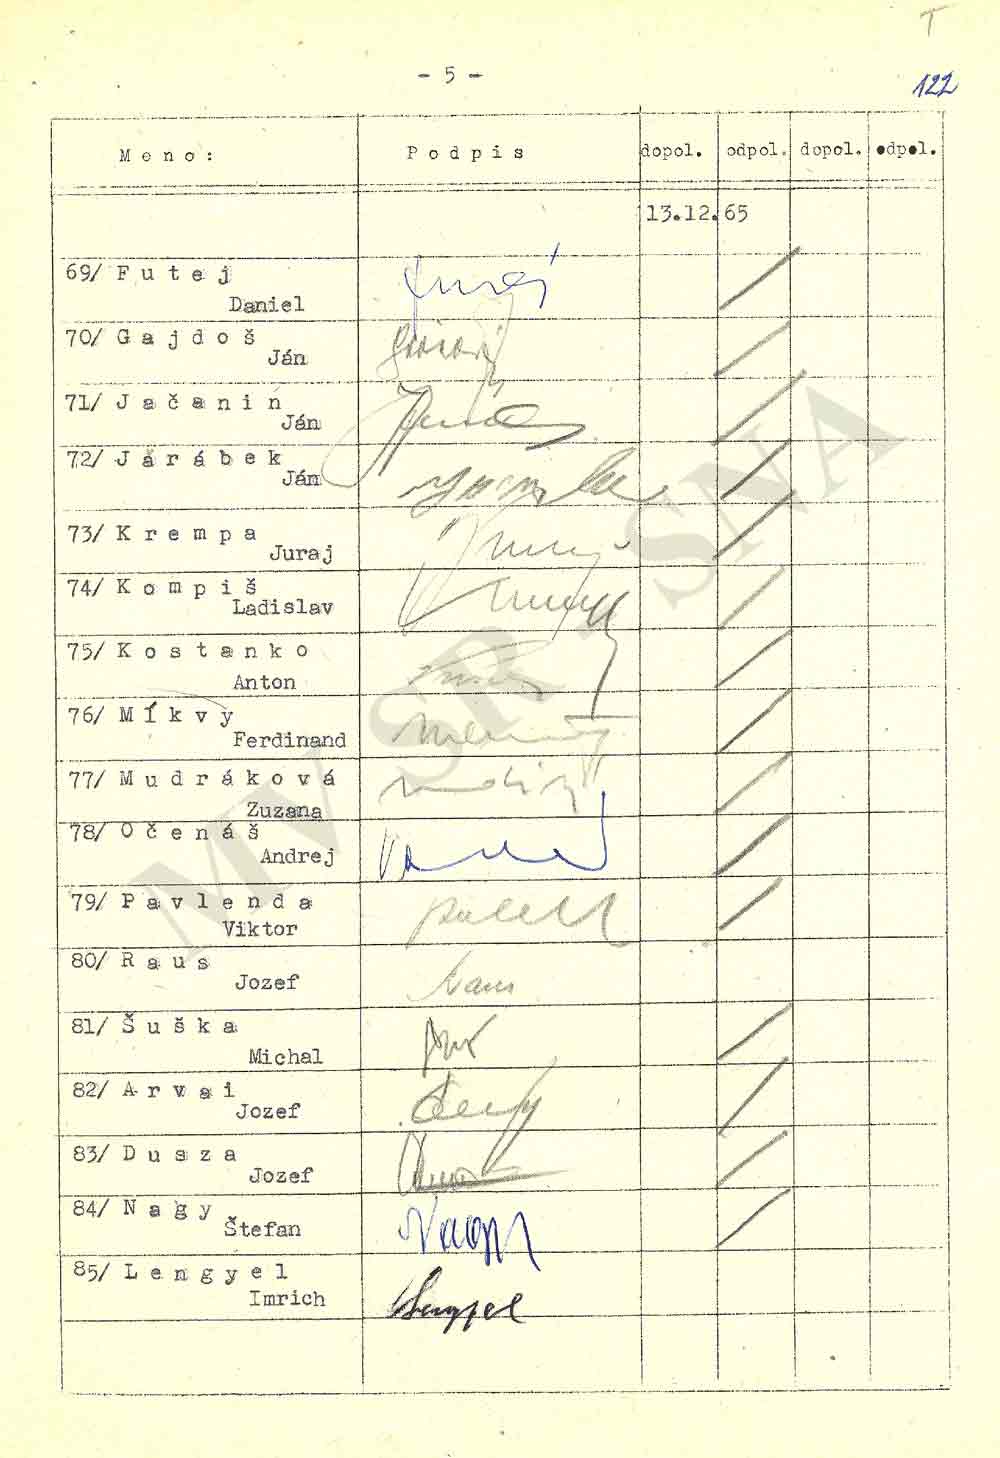 T
- 5 -
122
Meno: Podpis dopol. odpol. dopol. odpol.
13.12.65
69/ Futej
Daniel
70/ Gajdoš
Ján
71/ Jačanin
Ján
72/ Jarábek
Ján
73/ Krempa
Juraj
74/ Kompiš
Ladislav
75/ Kostanko
Anton
76/ Míkvy
Ferdinand
77/ Mudráková
Zuzana
78/ Očenáš
Andrej
79/ Pavlenda
Viktor
80/ Raus
Jozef
Raus
81/ Šuška
Michal
82/ Arvai
Jozef
83/ Dusza
Jozef
84/ Nagy
Štefan
Nagy
85/ Lengyel
Imrich
Lengyel
MV SR SNA